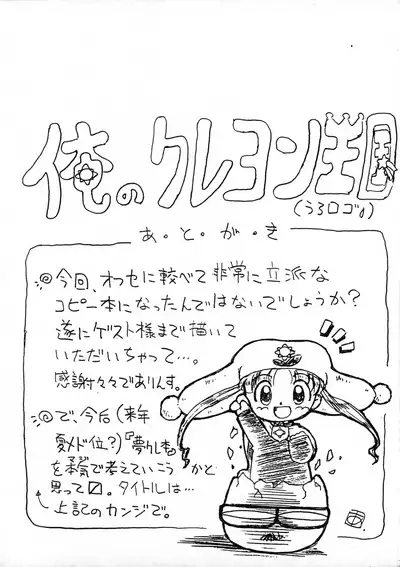 俺のクレヨン王国
(うろロゴ。)
あ・と・が・き
◎今回、オフセに較べて非常に立派な
コピー本になったんではないでしょうか?
遂にゲスト様まで描いて
いただいちゃって…。
感謝々々でありんす。
◎で、今后(来年
夏メド位?)『夢クレ本』
を本気で考えていこうかと
思って〼。タイトルは…
上記のカンジで。